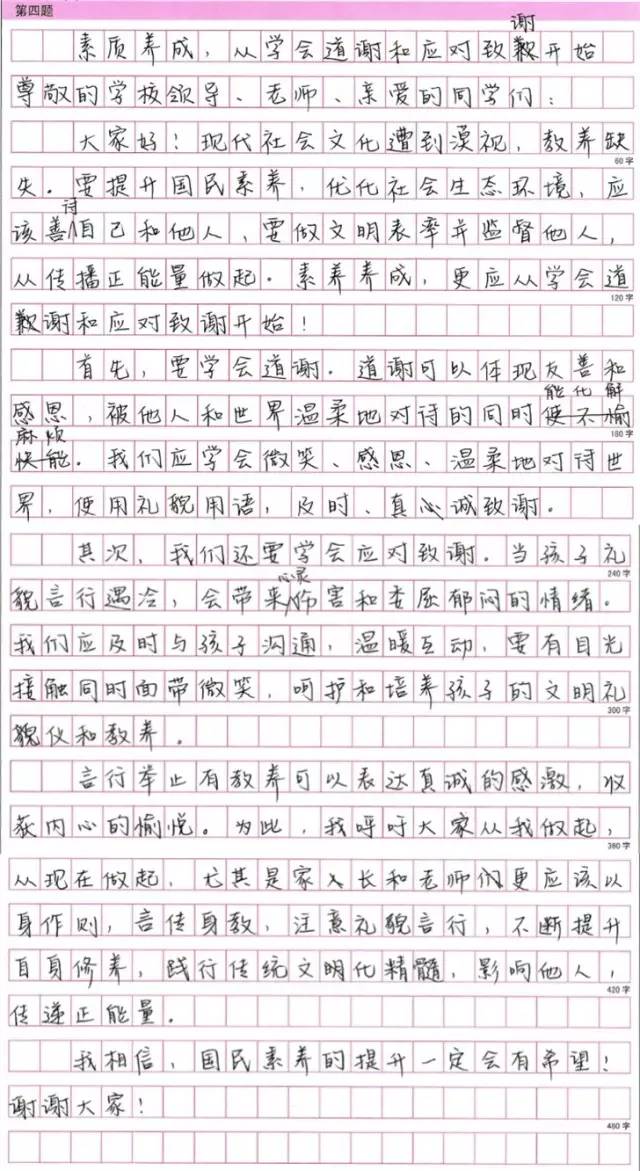 第四题
素质养成，从学会道谢和应对致谢开始
尊敬的学校领导、老师、亲爱的同学们：
大家好！现代社会文化遭到漠视，教养缺
60字
失。要提升国民素养，优化社会生态环境，应
该善待自己和他人，要做文明表率并监督他人，
从传播正能量做起。素养养成，更应从学会道
120字
谢和应对致谢开始！
首先，要学会道谢。道谢可以体现友善和
感恩，被他人和世界温柔地对待的同时能化解
180字
麻烦。我们应学会微笑、感恩、温柔地对待世
界，使用礼貌用语，及时、真心诚致谢。
其次，我们还要学会应对致谢。当孩子礼
240字
貌言行遇冷，会带来心灵伤害和委屈郁闷的情绪。
我们应及时与孩子沟通，温暖互动，要有目光
接触同时面带微笑，呵护和培养孩子的文明礼
300字
貌仪和教养。
言行举止有教养可以表达真诚的感激，收
获内心的愉悦。为此，我呼吁大家从我做起，
360字
从现在做起，尤其是家人长和老师们更应该以
身作则，言传身教，注意礼貌言行，不断提升
自身修养，践行传统文明化精髓，影响他人，
420字
传递正能量。
我相信，国民素养的提升一定会有希望！
谢谢大家！
480字